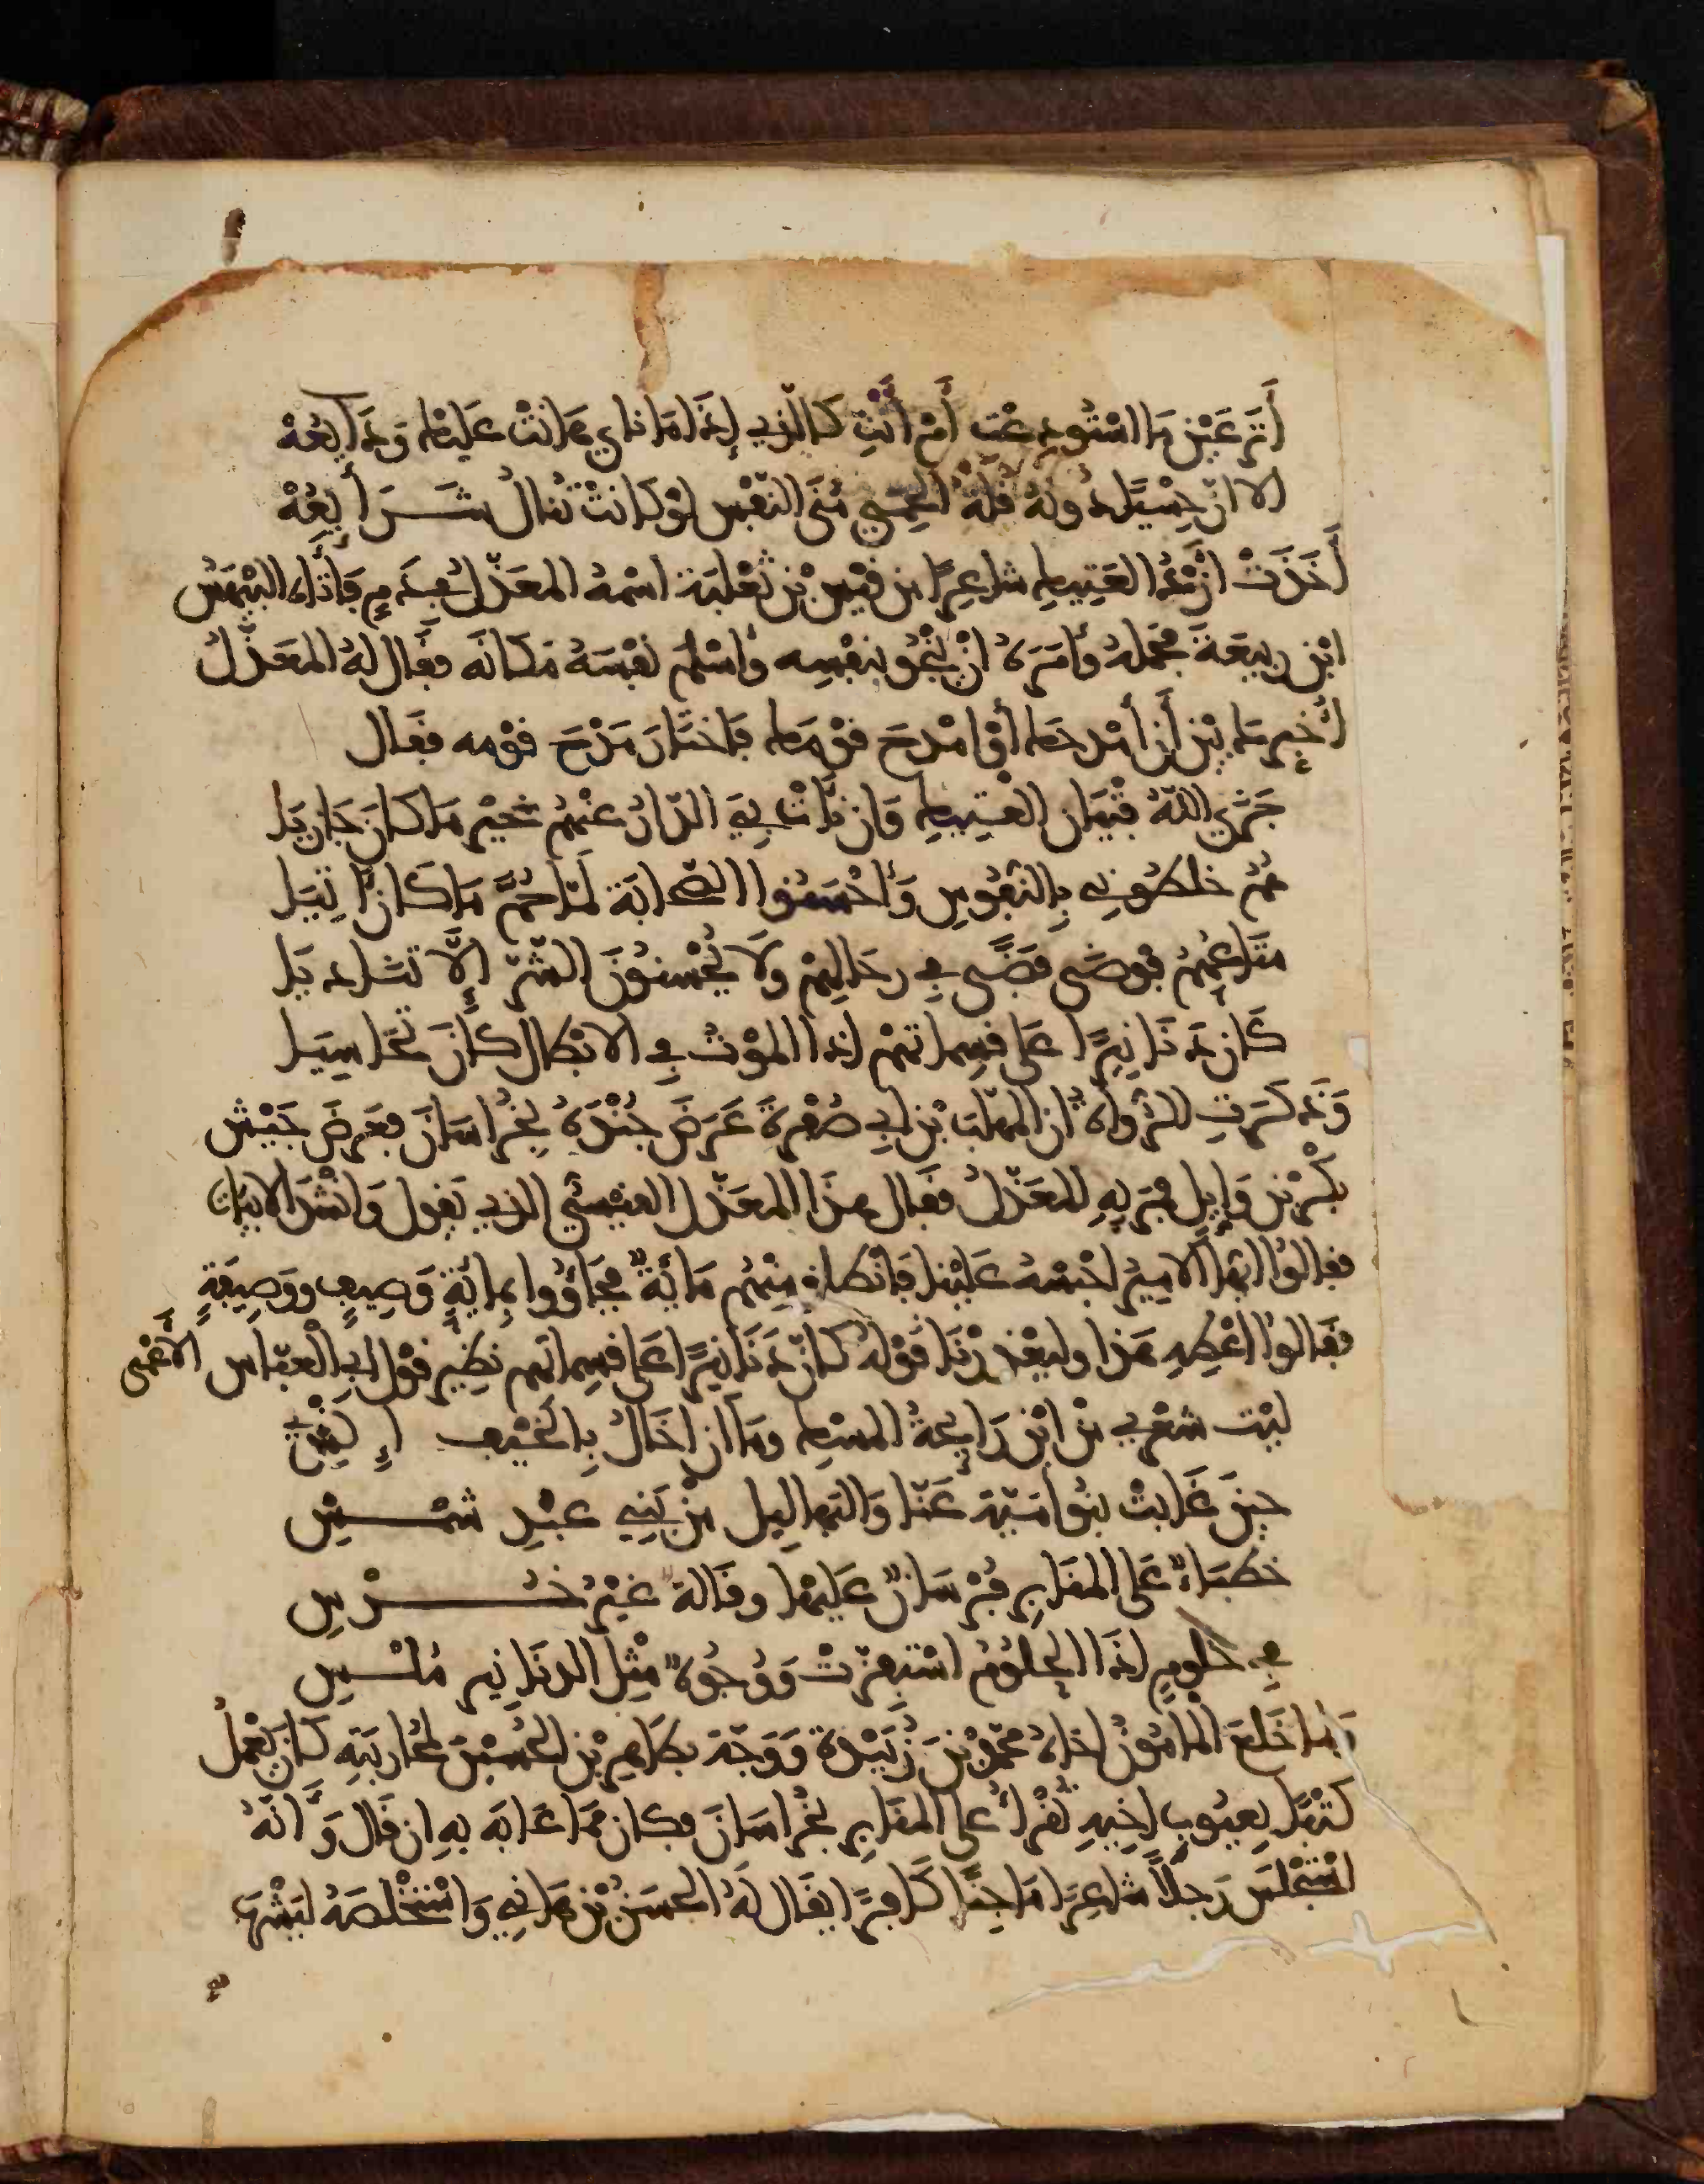 أَتَرْعَيْنَ مَا اسْتُودِعْتِ أَمْ أَنْتِ كَالَّذِي إِذَا مَا نَاى هَانَتْ عَلَيْهِ وَدَايِعُهْ
الا انّ حِسْيًا دُونَهُ قُلَّةُ الحِمَى مُنَى النَّفْسِ لَوْ كَانَتْ تُنَالُ شَرَايِعُهْ
أَخَذَتْ ازْدُ العَتِيكِ شاعِرًا من قيْسِ بْنِ ثَعْلَبَة اسْمُهُ المعَذّلُ فِي دَمٍ فَأَتَاهُ البَيْهَسُ
ابْن ربيعَة فحَمَلَهُ وأَمَرَهُ انْ يَنْجُوَ بنفْسِه وأسْلَمَ نفْسَهُ مَكانَه فقَال لهُ المعَذّلُ
أُخَيِّرُكَ بيْن أن أمْدحَكَ أوْ امْدحَ قوْمَكَ فَاختَارَ مَدْحَ قوْمه فقَال
جَزَى اللّهُ فِتْيَان العَتِيكِ وَإن نَأَتْ بِيَ الدّارُ عنْهُمْ خَيْر مَا كانَ جَازِيَا
هُمُ خلطُونِي بِالنّفُوسِ وَأحْسَنُوا الصّحَابَة لَمّا حُمَّ مَا كَان آتِيَا
متَاعُهُمُ فوْضَى فَضًى في رحَالِهِمْ ولَا يُحْسِنُونَ الشّرّ إلَّا تَنادِيَا
كَأن دَنَانِيرًا على قسِماتهمْ إذا الموْتُ في الابْطال كانَ تَحَاسِيَا
وَذَكَرَتِ الرُّواةُ أن المهَلّب بْن ابي صُفْرَةَ عَرَضَ جُنْدَهُ بخُراسَانَ فعَرَضَ جَيْش
بَكْر بْن وَايِلٍ فمَرّ بِهِ المعَذّلُ فقَال هذَا المعَذّل القيْسيّ الذي يَقول وَانْشَدَ الابيَاتَ
فقالُوا ايّها الامِيرُ احْبِسْهُ عَلَيْنا فَانْطلقَ مِنْهُمْ مَايَةٌ فجَاؤُوا بِمايَةِ وَصِيفٍ ووَصِيفَةٍ
فقَالوا أعْطِهِ هَذا وليَعْذرْنَا قوْلهُ كأن دَنَانِيرًا علَى قسِماتهم نظِير قوْل ابي العبّاس الأَعْمى
ليْت شعْري منْ ايْن رَايحةُ المسْكِ ومَا ان إخَالُ بِالخَيْفِ إِنْسِي
حينَ غَابتْ بنُو أمَيّةَ عَنّا وَالبَهالِيل منْ بَنِي عبْدِ شمْسِ
خطَبَاءٌ عَلى المنَابِر فُرْسَانٌ عَليْها وقَالةٌ غيْرُ خُرْسِ
في حُلُومٍ إذَا الحلُومُ اسْتفِزّتْ وَوُجُوهٌ مِثْلِ الدنَانِير مُلْسِ
وَلمّا خَلعَ المامُونُ أخاهُ محمّدَ بْنَ زُبَيْدةَ وَوَجّهَ بطَاهِر بْن الحُسَيْنَ لمحَاربَتِهِ كانَ يَعْمَلُ
كتُبًا بِعيُوبِ أخِيهِ تُقْرأُ على المنَابِر بخُراسَانَ فكان ممّا عَابَه بِهِ ان قَال وَأَنّهُ
اسْتَخْلَصَ رَجلاً شاعِرًا مَاجِنًا كَافِرًا يقَال لَهُ الحسَنُ بْن هَانِي وَاسْتَخْلَصَهُ ليَشْرَ